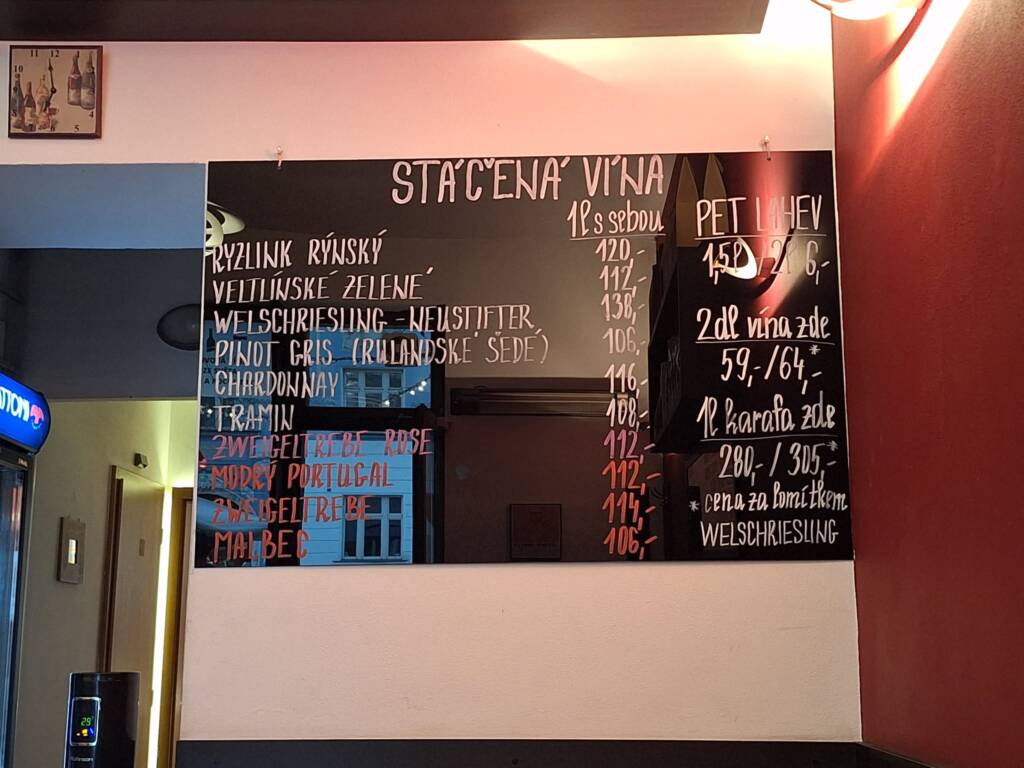 STÁČENÁ VÍNA
1l s sebou
RYZLINK RÝNSKÝ 120,-
VELTLÍNSKÉ ZELENÉ 112,-
WELSCHRIESLING - NEUSTIFTER 138,-
PINOT GRIS (RULANDSKÉ ŠEDÉ) 106,-
CHARDONNAY 116,-
TRAMIN 108,-
ZWEIGELTREBE ROSE 112,-
MODRÝ PORTUGAL 112,-
ZWEIGELTREBE 114,-
MALBEC 106,-
PET LAHEV
1,5l / 2l 6,-
2dl vína zde
59,-/64,-*
1l karafa zde
280,-/305,-*
*cena za lomítkem
WELSCHRIESLING
11 12
10
4
7 6 5
29